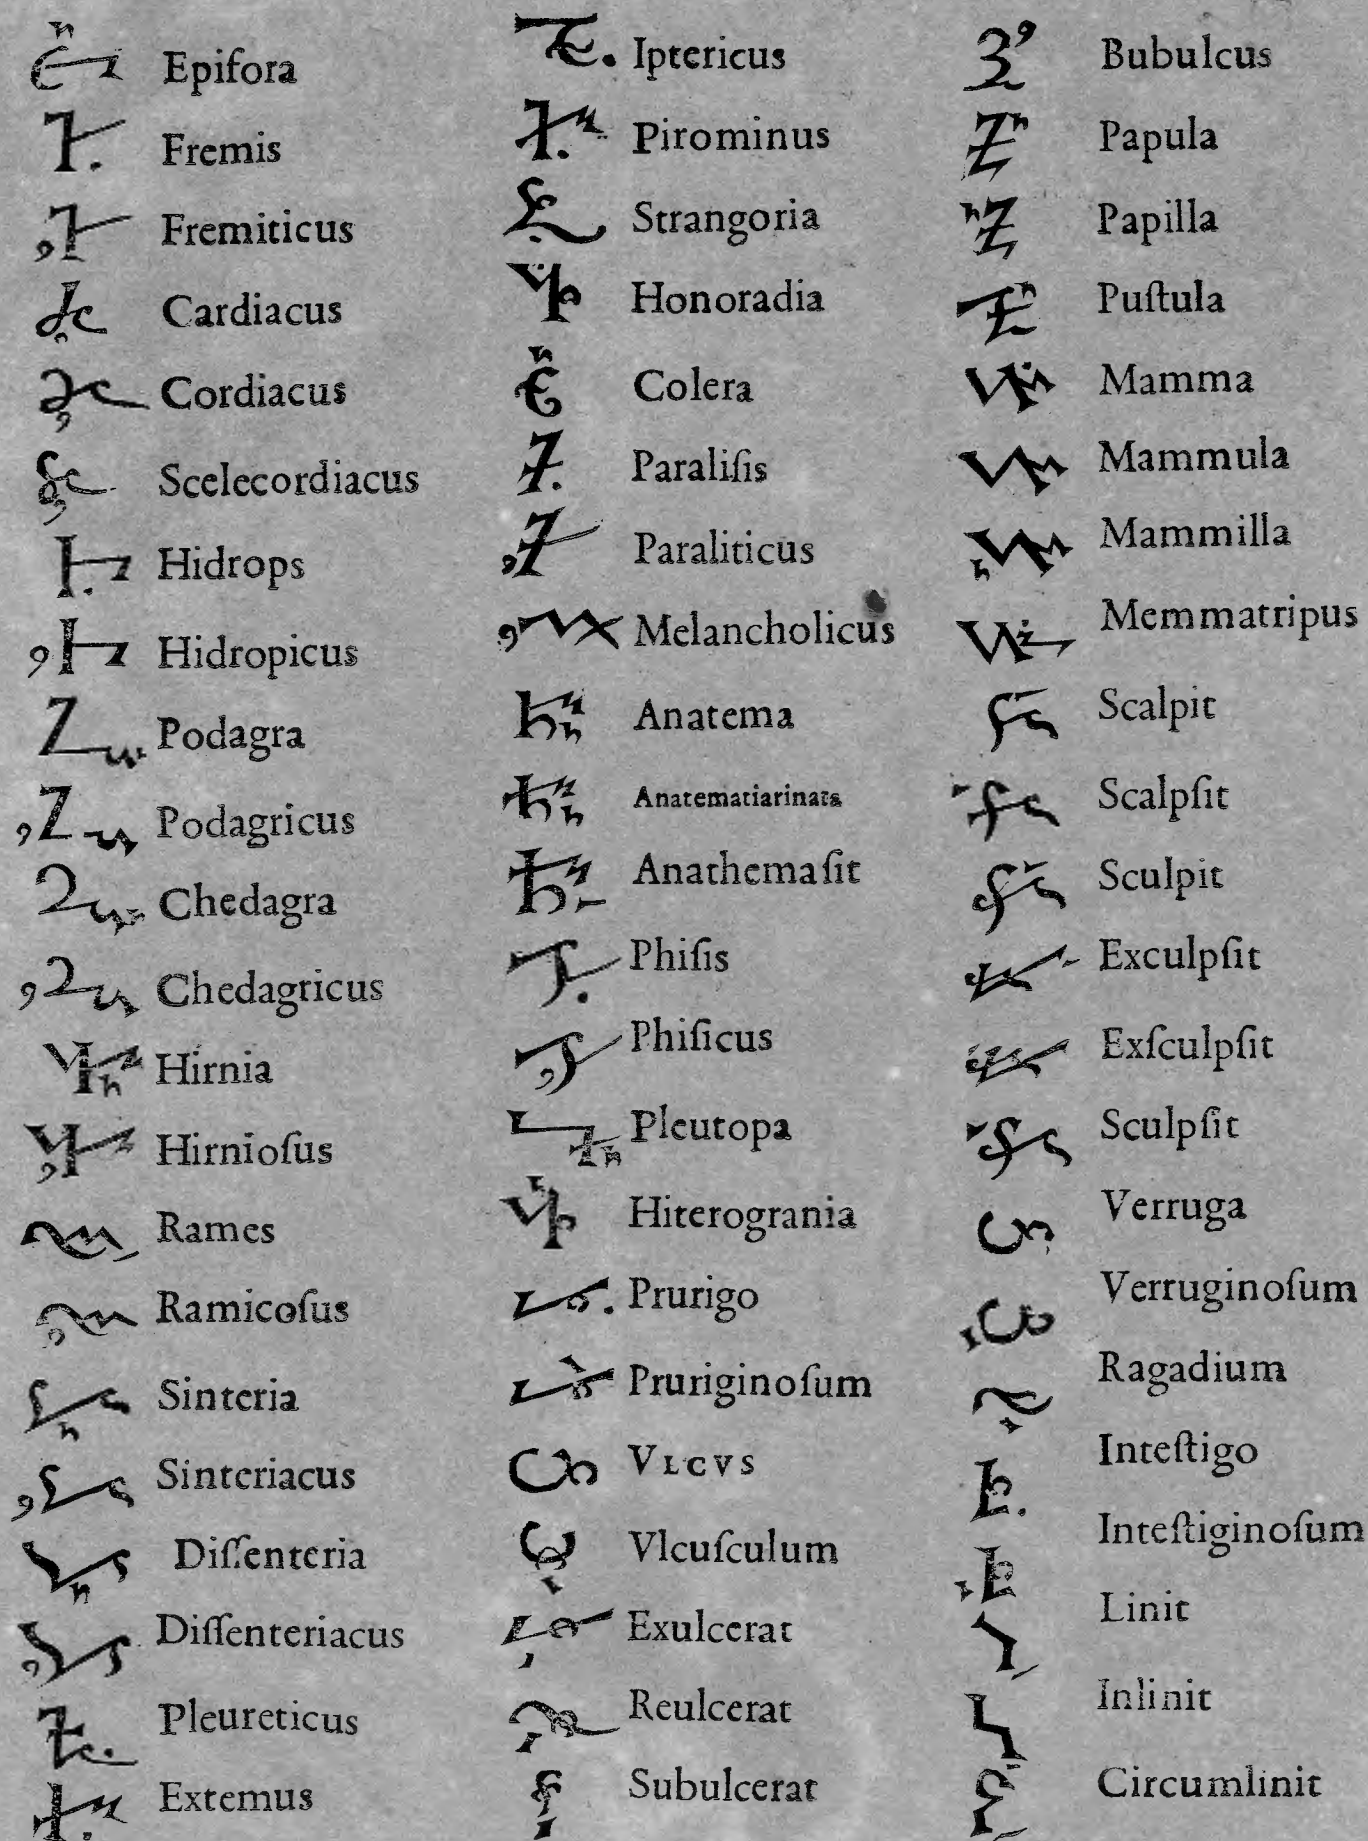 Epifora
Fremis
Fremiticus
Cardiacus
Cordiacus
Scelecordiacus
Hidrops
Hidropicus
Podagra
Podagricus
Chedagra
Chedagricus
Hirnia
Hirnioſus
Rames
Ramicoſus
Sinteria
Sinteriacus
Diſſenteria
Diſſenteriacus
Pleureticus
Extemus
Iptericus
Pirominus
Strangoria
Honoradia
Colera
Paraliſis
Paraliticus
Melancholicus
Anatema
Anatematiarinata
Anathemaſit
Phiſis
Phiſicus
Pleutopa
Hiterogrania
Prurigo
Pruriginoſum
VLCVS
Vlcuſculum
Exulcerat
Reulcerat
Subulcerat
Bubulcus
Papula
Papilla
Puſtula
Mamma
Mammula
Mammilla
Memmatripus
Scalpit
Scalpſit
Sculpit
Exculpſit
Exſculpſit
Sculpſit
Verruga
Verruginoſum
Ragadium
Inteſtigo
Inteſtiginoſum
Linit
Inlinit
Circumlinit